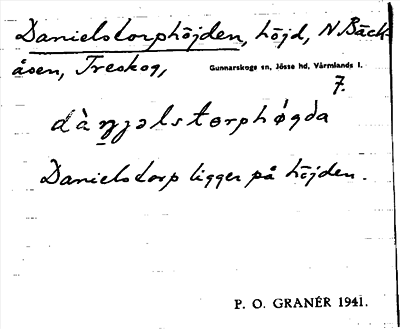 Danielstorphöjden, höjd, N Bäck-
åsen, Treskog,
Gunnarskogs sn, Jösse hd, Värmlands l.
7.
dàn̲jəlstɵrphǿgda
Danielstorp ligger på höjden.
P. O. GRANÉR 1941.